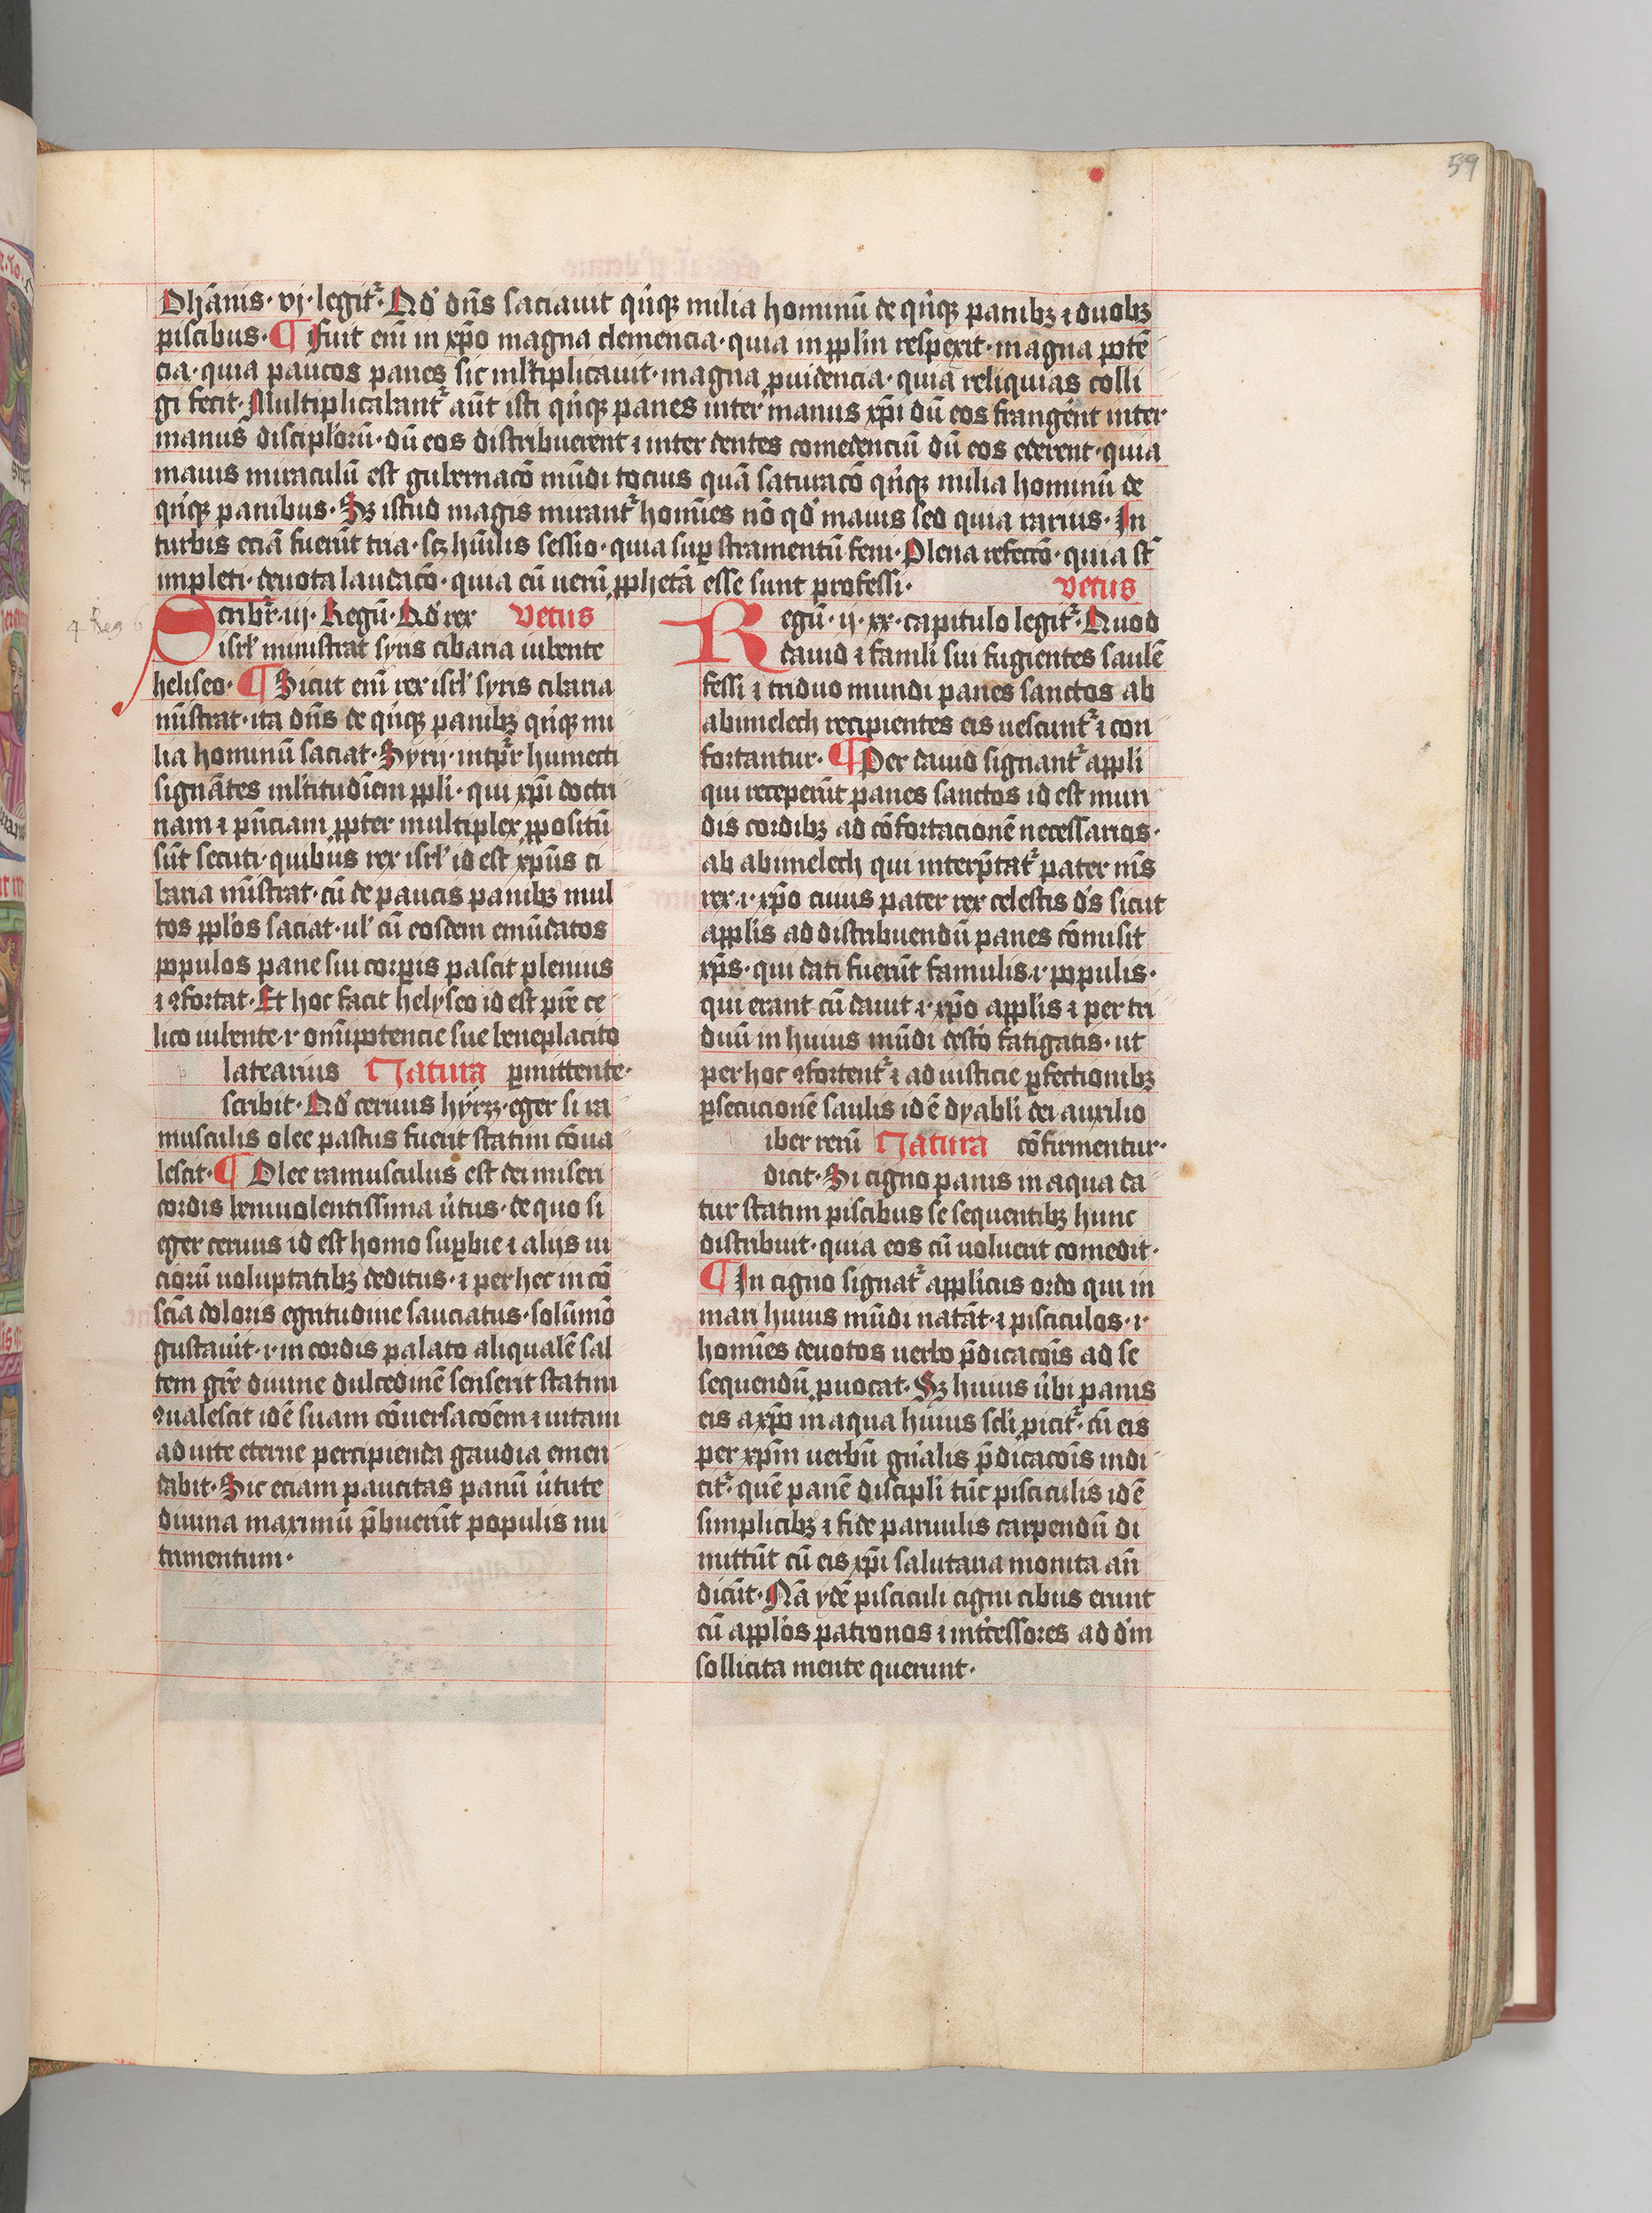 59
Ohānis · vj · legit᷑ · Qd̓ dn̄s saciauit qinq̨ milia hominū de qinq̨ panibꝫ ⁊ duobꝫ
piscibus · ¶ Fuit eni̅ in xp̄o magna clemencia · quia in pp̄lm̄ respexit · magna potē
cia · quia paucos panes sic ml̄tiplicauit · magna ꝓuidencia · quia reliquias colli
gi fecit · Multiplicabant᷑ aūt isti qinq̨ panes inter manus xp̄i dū eos frangēnt inter
manus discipl̓orū · dū eos distribuerent ⁊ inter dentes comedenciū dū eos ederent · quia
maius miraculū est gubernacō mūdi tocius quā saturacō qinq̨ milia hominū de
qinq̨ panibus · Sꝫ istud magis mirant᷑ homīes nō qd̓ maius sed quia rarius · In
turbis eciā fuerūt tria · scꝫ hūilis sessio · quia suꝑ stramentū feni · Plena refeccō · quia st̄
impleti · deuota laudacō · quia eū uerū ꝓphetā esse sunt professi ·
vetus
4 Reg 6
Scribit᷑ · iij · Regū · Qd̓ rex vetus
isrl̓ ministrat syris cibaria iubente
heliseo · ¶ Sicut eni̅ rex isrl̓ syris cibaria
mīstrat · ita dn̄s de qinq̨ panibꝫ qinq̨ mi
lia hominū saciat · Syrij · intp̄r̄ humecti
signātes ml̄titudīem pp̄li · qui xp̄i doctri
nam ⁊ pn̄iam ꝓpter multiplex ꝓpositū
sūt secuti · quibus rex isrl̓ id est xp̄us ci
baria mīstrat · cū de paucis panibꝫ mul
tos pp̄los saciat · ul̓ cū eosdem emūdatos
populos pane sui corꝑis pascit plenius
⁊ ꝯfortat · Et hoc facit helyseo id est pr̄e ce
lico iubente · i · om̄ipotencie sue beneplacito
latearius Natura ꝑmittente ·
scribit · Qd̓ ceruus eger si ra
musculis olee pastus fuerit statim cōua
lescit · ¶ Olee ramusculus est dei miseri
cordis beniuolentissima ūtus · de quo si
eger ceruus id est homo suꝑbie ⁊ alijs ui
ciorū uoluptatibꝫ deditus · ⁊ per hec in cō
sciā doloris egritudine sauciatus · solūmō
gustauit · i · in cordis palato aliqualē sal
tem gr̄e diuine dulcedinē senserit statim
ꝯualescit idē suam cōuersacōem ⁊ uitam
ad uite eterne percipienda gaudia emen
dabit · Sic eciam paucitas panū ūtute
diuina maximū p̄buerūt populis nu
trimentum ·
Regū · ij · xx · capitulo legit᷑ · Quod
dauid ⁊ famli̅ sui fugientes saulē
fessi ⁊ triduo mundi panes sanctos ab
abimelech recipientes eis uescunt᷑ ⁊ con
fortantur · ¶ Per dauid signant᷑ appl̓i
qui receperūt panes sanctos id est mun
dis cordibꝫ ad cōfortacionē necessarios ·
ab abimelech qui interp̄tat᷑ pater mīs
rex · i · xp̄o cuius pater rex celestis d̄s sicut
appl̓is ad distribuendū panes cōmisit
xp̄s · qui dati fuerūt famulis · i · populis ·
qui erant cū dauit · i · xp̄o appl̓is ⁊ per tri
duū in huius mūdi fatigatis · ut
per hoc ꝯfortent᷑ ⁊ ad iusticie ꝑfectionibꝫ
ꝑsecucionē saulis idē dyabli dei auxilio
iber rerū Natura cōfirmentur ·
dicit · Si cigno panis in aqua da
tur statim piscibus se sequentibꝫ hunc
distribuit · quia eos cū uoluerit comedit ·
¶ In cigno signat᷑ appl̓icus ordo qui in
mari huius mūdi natāt · ⁊ pisciculos · i ·
homīes deuotos uerbo p̄dicacōis ad se
sequendū ꝓuocat · Sꝫ huius ūbi panis
eis a xp̄o in aqua huius scl̓i ꝓicit᷑ · cū eis
per xp̄m uerbū gn̄alis p̄dicacōis indi
cit᷑ · quē panē discipl̓i tūc pisciculis idē
simplicibꝫ ⁊ fide paruulis carpendū di
mittūt cū eis xp̄i salutaria monita an̄
dicūt · Nā ydē pisciculi cigni cibus erunt
cū appl̓os patronos ⁊ int̄cessores ad d̄m
sollicita mente querunt ·